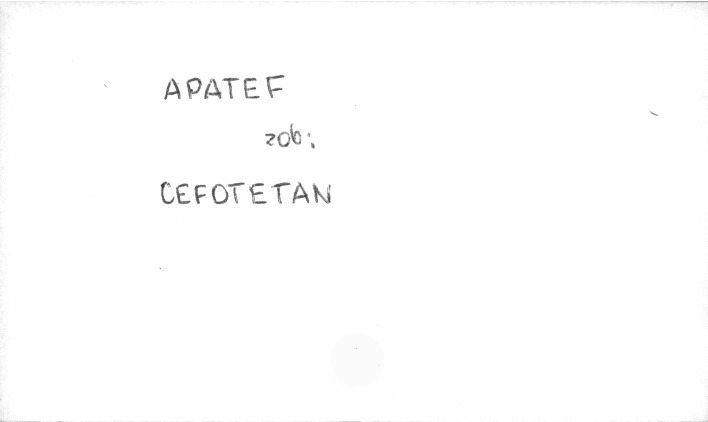 APATEF
zob:
CEFOTETAN